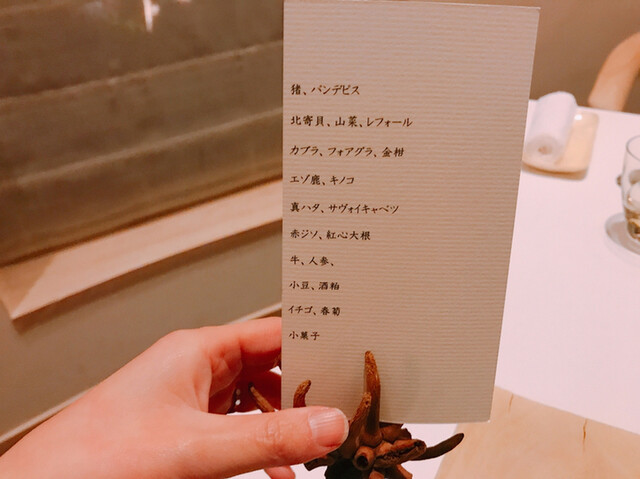 猪、パンデピス
北寄貝、山菜、レフォール
カブラ、フォアグラ、金柑
エゾ鹿、キノコ
真ハタ、サヴォイキャベツ
赤ジソ、紅心大根
牛、人参、
小豆、酒粕
イチゴ、春菊
小菓子